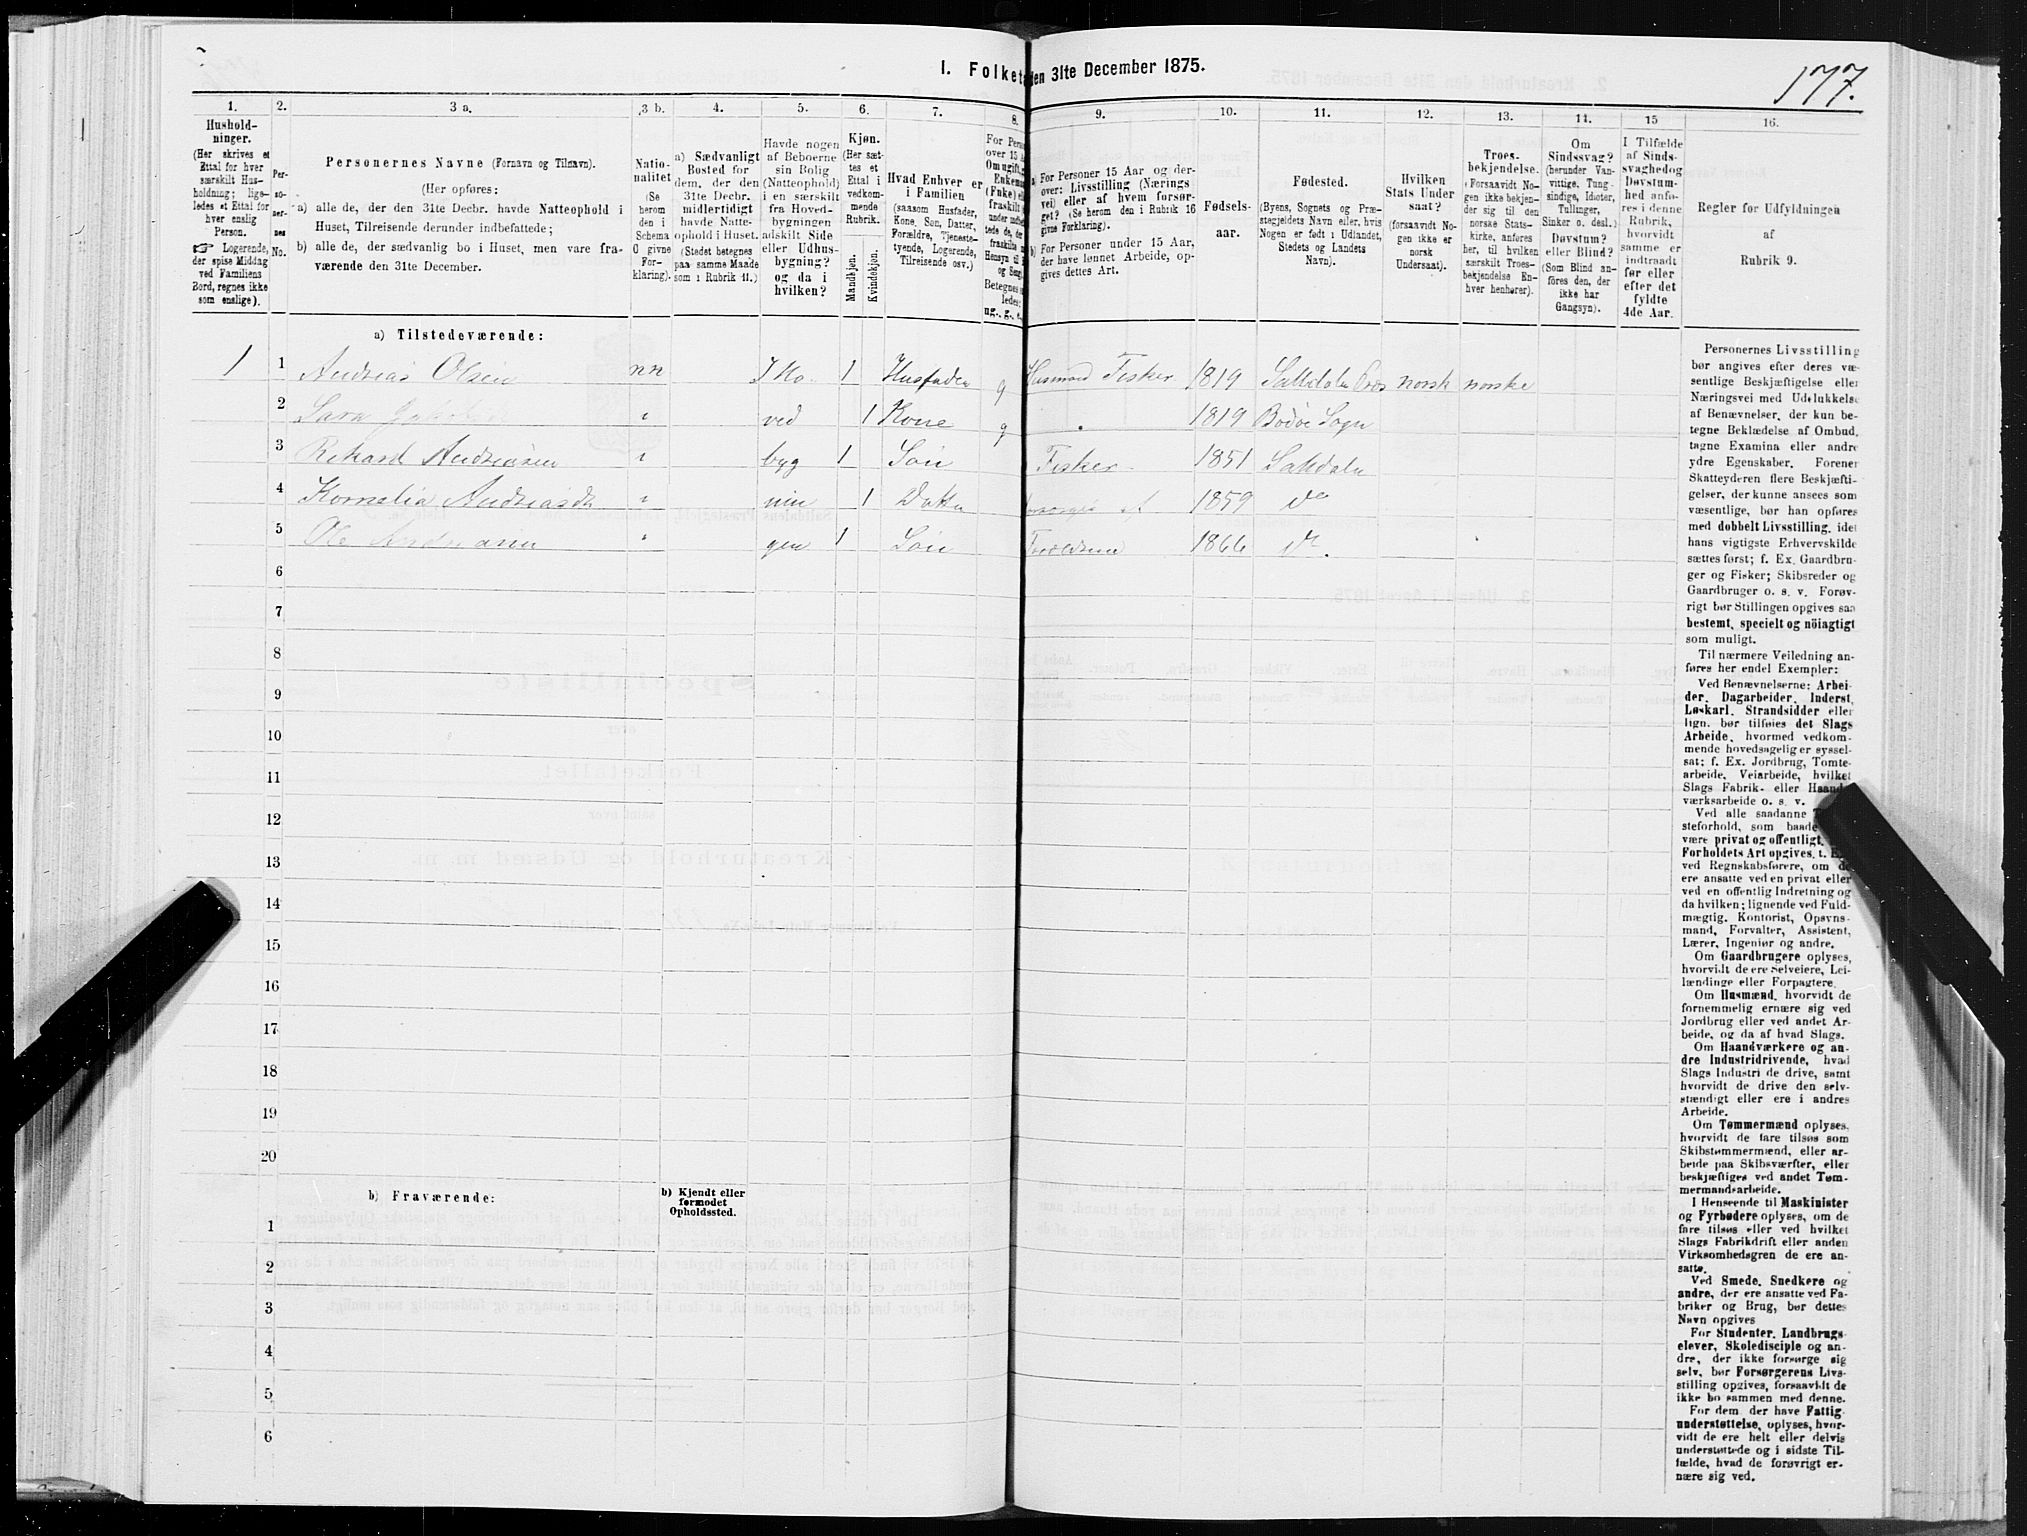 177.
I. Folket den 31te December 1875.
1. 2. 3 a. 3 b. 4. 5. 6. 7. 8. 9. 10. 11. 12. 13. 14. 15 16.
Hushold-
ninger.
(Her skrives et
Ettal for hver
særskilt Hus-
holdning; lige-
ledes et Ettal for
hver enslig
Person.
☞ Logerende,
der spise Middag
ved Familiens
Bord, regnes ikke
som enslige).
Per-
so-
ner-
nes
No.
Personernes Navne (Fornavn og Tilnavn).
(Her opføres:
a) alle de, der den 31te Decbr. havde Natteophold i
Huset, Tilreisende derunder indbefattede;
b) alle de, der sædvanlig bo i Huset, men vare fra-
værende den 31te December.
Natio-
nalitet
(Se
herom
den i
Schema
O givne
For-
klaring).
a) Sædvanligt
Bosted for
dem, der den
31te Decbr.
midlertidigt
havde Natte-
ophold i Huset.
(Stedet betegnes
paa samme Maade
som i Rubrik 11.)
Havde nogen
af Beboerne
sin Bolig
(Natteophold)
i en særskilt
fra Hoved-
bygningen
adskilt Side
eller Udhus-
bygning?
og da i
hvilken?
Kjøn.
(Her sæt-
tes et
Ettal i
vedkom-
mende
Rubrik.
Mandkjøn.
Kvindekjøn.
Hvad Enhver er
i Familien
(saasom Husfader,
Kone, Søn, Datter,
Forældre, Tjeneste-
tyende, Logerende,
Tilreisende osv.)
For Pers
over 15 A
Om ugift,
Enkema
(Fnke) el
fraskilt
Betegnes
ledes:
ug., g., e.,
a) For Personer 15 Aar og der-
over: Livsstilling (Nærings
vei) eller af hvem forsør-
get? (Se herom den i Rubrik 16
givne Forklaring).
b) For Personer under 15 Aar,
der have lønnet Arbeide, op-
gives dettes Art.
Fødsels-
aar.
Fødested.
(Byens, Sognets og Præ-
stegjeldets Navn eller, hvis
Nogen er født i Udlandet,
Stedets og Landets
Navn).
Hvilken
Stats Under
saat?
(forsaavidt No-
gen ikke er
norsk
Undersaat).
Troes-
bekjendelse.
(Forsaavidt No-
gen ikke bekjen-
der sig til den
norske Stats-
kirke, anføres
her, til hvilken
særskilt Troes-
bekjendelse En-
hver henhører).
Om
Sindssvag?
(herunder Van-
vittige, Tung-
sindige, Idioter,
Tullinger,
Sinker o. desl.)
Døvstum?
eller Blind?
(Som Blind an-
føres den, der
ikke har
Gangsyn).
I Tilfælde
af Sinds-
svaghed og
Døvstum-
hed anfø-
res i denne
Rubrik,
hvorvidt
samme er
indtraadt
før eller
efter det
fyldte
4de Aar.
Regler for Udfyldningen
af
Rubrik 9.
a) Tilstedeværende:
1 1 Andreas Olsen nn I Ho 1 Husfader g Husmand Fisker 1819 Saltdalen norsk norske
2 Sara ved 1 Kone g 1819 Bodøe Sogn
3 Rikard Andreasen byg 1 Søn Fisker 1851 Saltdalen
4 Kornelia Andreasdt nin 1 Datter af 1859 do
5 Ole gen 1 Søn Forældrene 1866 do.
6
7
8
9
10
11
12
13
14
15
16
17
18
19
20
b) Fraværende:
b) Kjendt eller
formodet
Opholdssted.
1
2
3
4
5
6
Personernes Livsstilling
bør angives efter deres væ-
sentlige Beskjæftigelse eller
Næringsvei med Udelukkelse
af Benævnelser, der kun be-
tegne Beklædelse af Ombud,
tagne Examina eller andre
ydre Egenskaber. Forener
Skatteyderen flere Beskjæfti-
gelser, der kunne ansees som
væsentlige, bør han opføres
med dobbelt Livsstilling, idet
hans vigtigste Erhvervskilde
sættes først; f. Ex. Gaardbru-
ger og Fisker; Skibsreder og
Gaardbruger o. s. v. Forøv-
rigt bør Stillingen opgives saa
bestemt, specielt og nöiagtigt
som muligt.
Til nærmere Veiledning an-
føres her endel Exempler:
Ved Benævnelserne: Arbei-
der, Dagarbeider, Inderst,
Løskarl, Strandsidder eller
lign. bør tilføies det Slags
Arbeide, hvormed vedkom-
mende hovedsagelig er syssel-
sat; f. Ex. Jordbrug, Tomte-
arbeide, Veiarbeide, hvilket
Slags Fabrik- eller Haand-
værksarbeide o. s. v.
Ved alle saadanne
steforhold, som baade
være privat og offentligt,
Forholdets Art opgives, t. E
ved Regnskabsførere, om de
ere ansatte ved en privat eller
ved en offentlig Indretning og
da hvilken; lignende ved Fuld-
mægtig, Kontorist, Opsyns-
mand, Forvalter, Assistent,
Lærer, Ingeniør og andre.
Om Gaardbrugere oplyses,
hvorvidt de ere Selveiere, Lei-
lændinge eller Forpagtere.
Om Husmænd, hvorvidt de
fornemmelig ernære sig ved
Jordbrug eller ved andet Ar-
beide, og da af hvad Slags.
Om Haandværkere og an-
dre Industridrivende, hvad
Slags Industri de drive, samt
hvorvidt de drive den selv-
stændigt eller ere i andres
Arbeide.
Om Tømmermænd oplyses,
hvorvidt de fare tilsøs som
Skibstømmermænd, eller ar-
beide paa Skibsværfter, eller
beskjæftiges ved andet Tøm-
mermandsarbeide.
I Henseende til Maskinister
og Fyrbødere oplyses, om de
fare tilsøs eller ved hvilket
Slags Fabrikdrift eller anden
Virksomhedsgren de ere an-
satte.
Ved Smede, Snedkere og
andre, der ere ansatte ved Fa-
briker og Brug, bør dettes
Navn opgives
For Studenter, Landbrugs-
elever, Skoledisciple og an-
dre, der ikke forsørge sig
selv, bør Forsørgerens Livs-
stilling opgives, forsaavidt de
ikke bo sammen med denne.
For dem, der have Fattig-
understøttelse, oplyses, hvor-
vidt de ere helt eller delvis
understøttede og i sidste Til-
fælde, hvad de forøvrigt er-
nære sig ved.